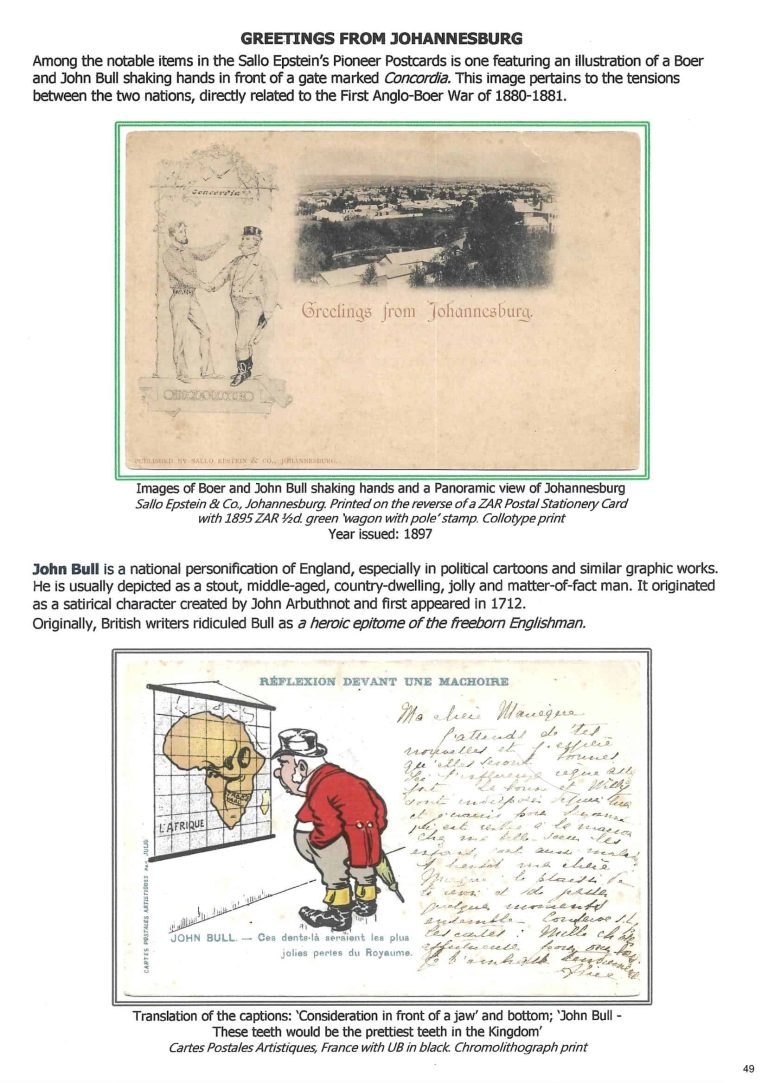 GREETINGS FROM JOHANNESBURG
Among the notable items in the Sallo Epstein's Pioneer Postcards is one featuring an illustration of a Boer
and John Bull shaking hands in front of a gate marked Concordia. This image pertains to the tensions
between the two nations, directly related to the First Anglo-Boer War of 1880-1881.
Concordia
Greetings from Johannesburg.
PUBLISHED BY SALLO EPSTEIN & CO., JOHANNESBURG.
Images of Boer and John Bull shaking hands and a Panoramic view of Johannesburg
Sallo Epstein & Co., Johannesburg. Printed on the reverse of a ZAR Postal Stationery Card
with 1895 ZAR ½d. green 'wagon with pole' stamp. Collotype print
Year issued: 1897
John Bull is a national personification of England, especially in political cartoons and similar graphic works.
He is usually depicted as a stout, middle-aged, country-dwelling, jolly and matter-of-fact man. It originated
as a satirical character created by John Arbuthnot and first appeared in 1712.
Originally, British writers ridiculed Bull as a heroic epitome of the freeborn Englishman.
RÉFLEXION DEVANT UNE MACHOIRE
L'AFRIQUE
CARTES POSTALES ARTISTIQUES
JOHN BULL. — Ces dents-là seraient les plus
jolies perles du Royaume.
Ma chère
J'attends de tes
nouvelles et j'espère
qu'elles seront bonnes
à la maison
ma chère
le plaisir
et de passer
quelques moments
ensemble
Mille
Alice
Translation of the captions: 'Consideration in front of a jaw' and bottom; 'John Bull -
These teeth would be the prettiest teeth in the Kingdom'
Cartes Postales Artistiques, France with UB in black. Chromolithograph print
49